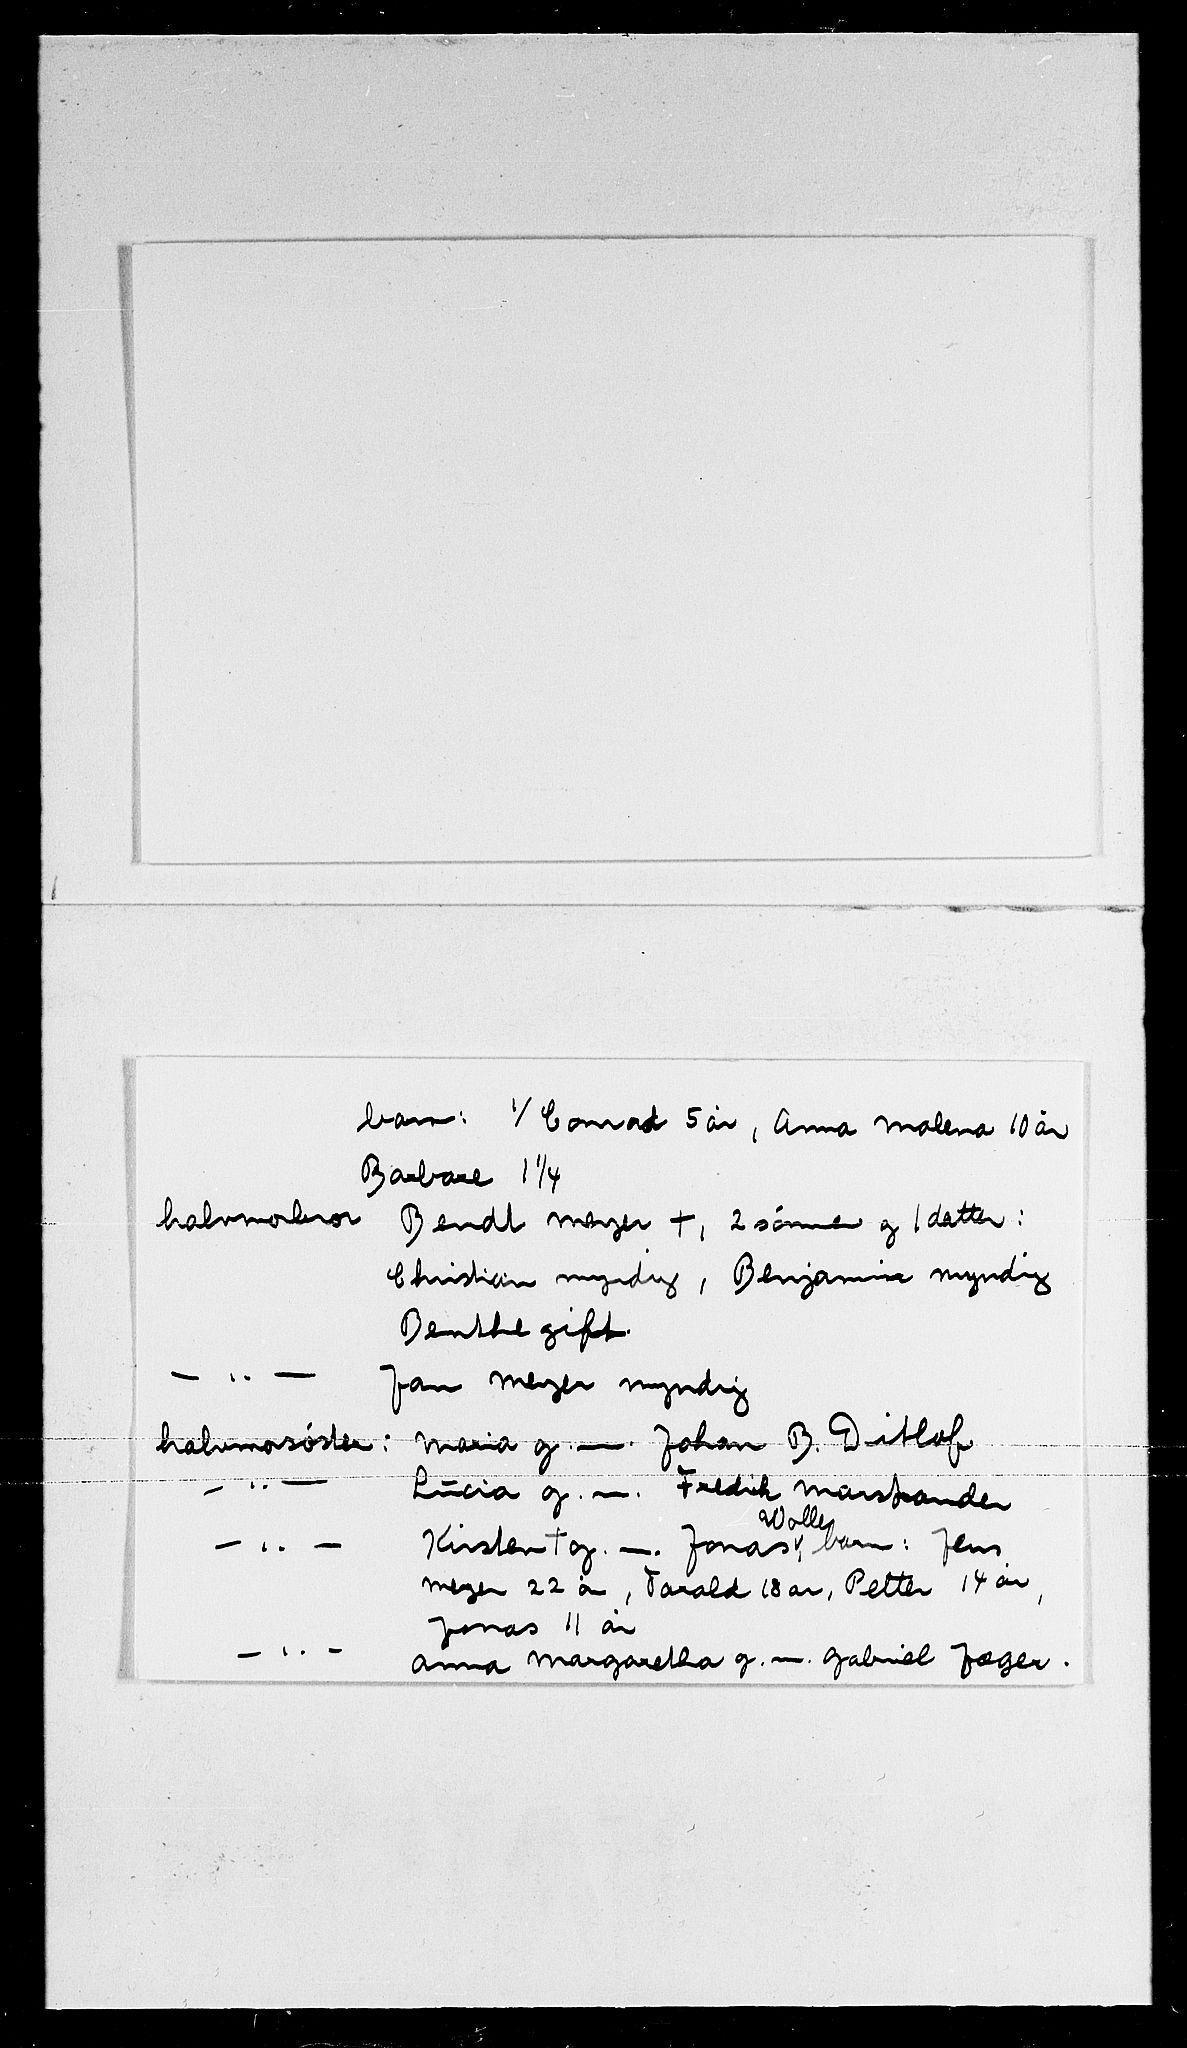 barn: 1/ Conrad 5 år, Anna Malena 10 år
Barbare 1 1/4
halvmorbror Bendt Meyer +, 2 sønner og 1 datter:
Christian myndig, Benjamin myndig
Benthe gift.
— " — Jan Meyer myndig
halvmorsøster: Maria g. m. Johan B. Ditlof
— " — Lucia g. m. Fredrik Marstrander
— " — Kirsten + g. m. Jonas Wolle, barn: Jens
Meyer 22 år, Tarald 18 år, Petter 14 år,
Jonas 11 år
— " — Anna Margaretha g. m. Gabriel Jæger.